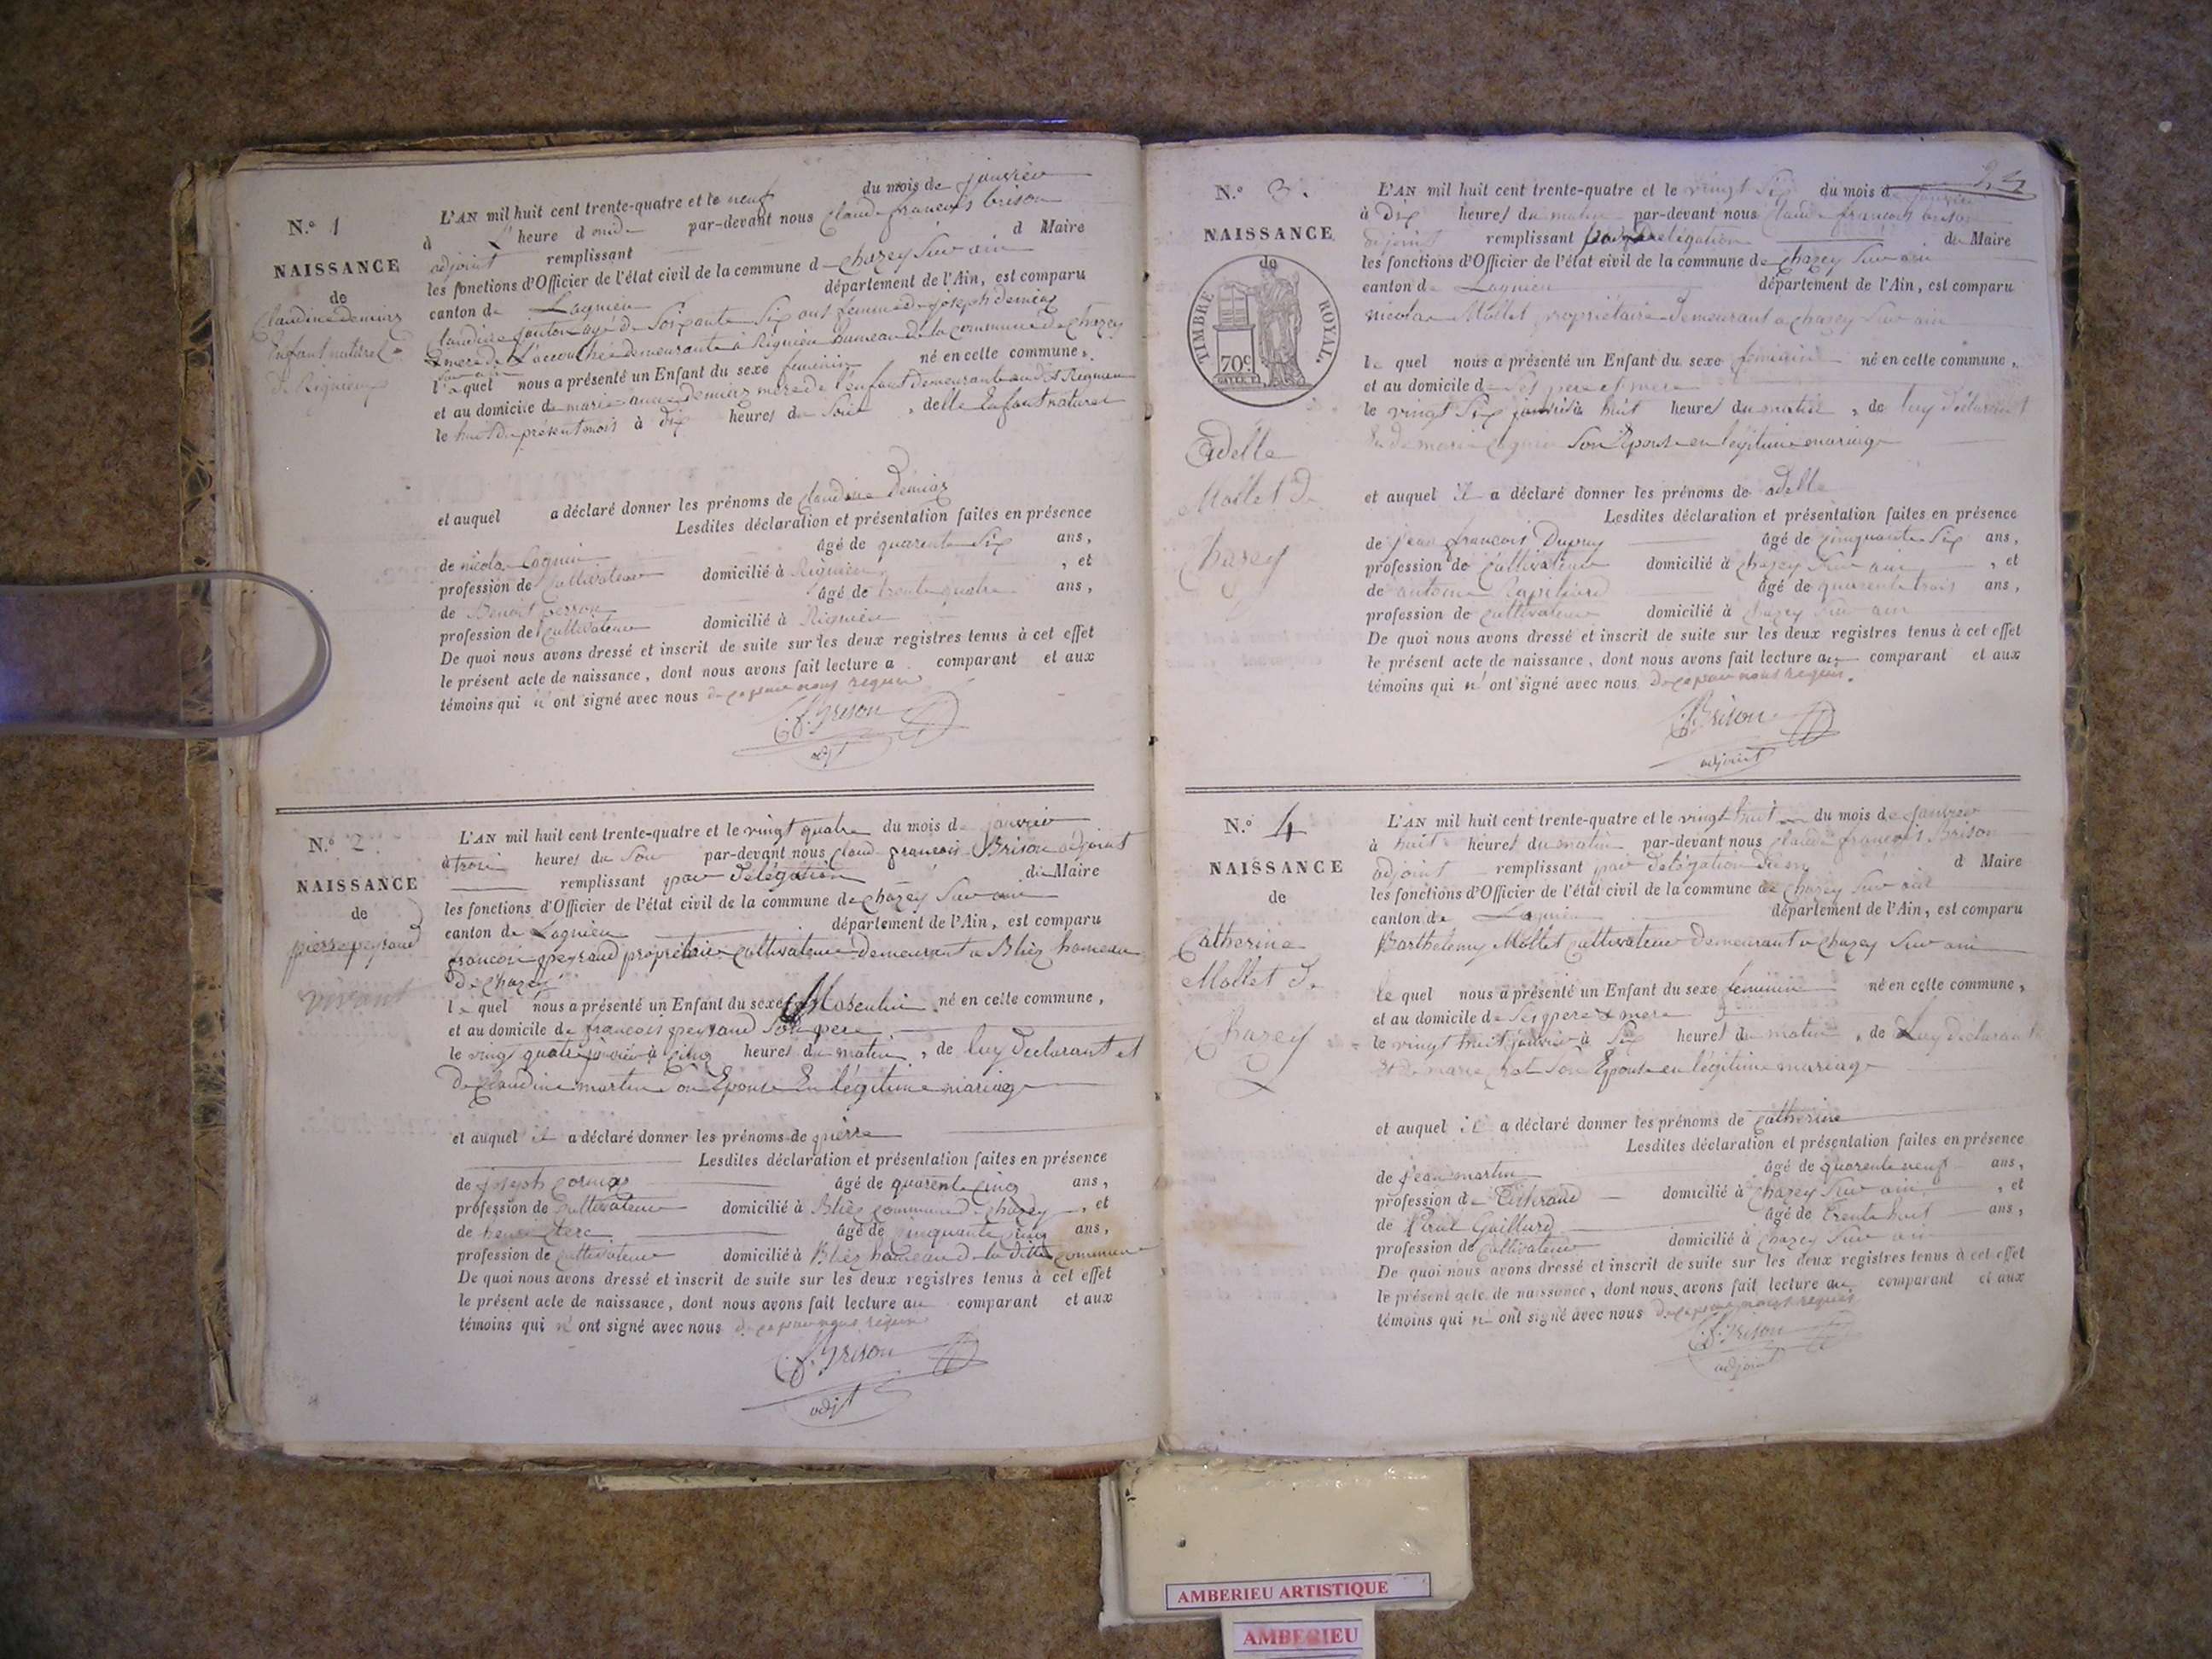 N.º 1
NAISSANCE
de
Claudine demiaz
Enfant naturel
de Rignieu
L'AN mil huit cent trente-quatre et le neuf du mois de janvier
à l'heure d par-devant nous Claude françois brison
adjoint remplissant d Maire
les fonctions d'Officier de l'état civil de la commune d chazey Sur ain
canton de Lagnieu département de l'Ain, est comparu
Claudine agé de Soixante Six ans femme de joseph demiaz
mere de L'accouchée demeurante à Rignieu hameau de la commune de chazey
Sur ain
laquel nous a présenté un Enfant du sexe feminin né en cette commune,
et au domicile de marie anne demiaz mere de l'enfant demeurante au dit Rignieu
le huit du présent mois à dix heures du Soir, delle Enfant naturel
et auquel a déclaré donner les prénoms de Claudine Demiaz
Lesdites déclaration et présentation faites en présence
de nicolas âgé de quarente Six ans,
profession de Cultivateur domicilié à Rignieu, et
de Benoit âgé de trente quatre ans,
profession de Cultivateur domicilié à Rignieu
De quoi nous avons dressé et inscrit de suite sur les deux registres tenus à cet effet
le présent acte de naissance, dont nous avons fait lecture a comparant et aux
témoins qui n' ont signé avec nous de ce par nous requis
C. f. Brison
adjt
N.º 2
NAISSANCE
de
pierre peyraud
L'AN mil huit cent trente-quatre et le vingt quatre du mois de janvier
à trois heures du Soir par-devant nous Claude françois Brison adjoint
remplissant par délégation du Maire
les fonctions d'Officier de l'état civil de la commune de chazey Sur ain
canton de Lagnieu département de l'Ain, est comparu
françois peyraud propriétaire Cultivateur demeurant a Bliez hameau
De chazey
le quel nous a présenté un Enfant du sexe Masculin né en cette commune,
et au domicile de françois peyraud Son pere
le vingt quatre janvier à cinq heures du matin, de luy declarant et
De Claudine martin Son Epouse En légitime mariage
et auquel il a déclaré donner les prénoms de pierre
Lesdites déclaration et présentation faites en présence
de joseph âgé de quarente cinq ans,
profession de Cultivateur domicilié à Bliez commune de chazey, et
de âgé de cinquante cinq ans,
profession de cultivateur domicilié à Bliez hameau de la ditte commune
De quoi nous avons dressé et inscrit de suite sur les deux registres tenus à cet effet
le présent acte de naissance, dont nous avons fait lecture au comparant et aux
témoins qui n' ont signé avec nous de ce par nous requis
C. f. Brison
adjt
N.º 3.
NAISSANCE
de
TIMBRE ROYAL.
70c
Adelle
Mollet De
Chazey
L'AN mil huit cent trente-quatre et le vingt Six du mois d janvier
à Dix heures du matin par-devant nous Claude françois brison
adjoint remplissant par Delégation du Maire
les fonctions d'Officier de l'état civil de la commune de chazey Sur ain
canton de Lagnieu département de l'Ain, est comparu
nicolas Mollet propriétaire demeurant a chazey Sur ain
le quel nous a présenté un Enfant du sexe feminin né en cette commune,
et au domicile de Ses pere et mere
le vingt Six janvier à huit heures du matin, de luy déclarant
Et de marie Son Epouse en légitime mariage
et auquel il a déclaré donner les prénoms de adelle
Lesdites déclaration et présentation faites en présence
de jean françois Dupuy âgé de cinquante Six ans,
profession de Cultivateur domicilié à chazey Sur ain, et
de antoine âgé de quarente trois ans,
profession de cultivateur domicilié à chazey Sur ain
De quoi nous avons dressé et inscrit de suite sur les deux registres tenus à cet effet
le présent acte de naissance, dont nous avons fait lecture au comparant et aux
témoins qui n' ont signé avec nous De ce par nous requis.
C. f. Brison
adjoint
N.º 4
NAISSANCE
de
Catherine
Mollet De
Chazey
L'AN mil huit cent trente-quatre et le vingt huit du mois de janvier
à huit heures du matin par-devant nous Claude françois Brison
adjoint remplissant par delégation d Maire
les fonctions d'Officier de l'état civil de la commune de chazey Sur ain
canton de Lagnieu département de l'Ain, est comparu
Barthelemy Mollet cultivateur Demeurant a Chazey Sur ain
le quel nous a présenté un Enfant du sexe feminin né en cette commune,
et au domicile de Ses pere & mere
le vingt huit janvier à Six heures du matin, de Luy déclarant
Et de marie Son Epouse en légitime mariage
et auquel il a déclaré donner les prénoms de Catherine
Lesdites déclaration et présentation faites en présence
de jean martin âgé de quarente neuf ans,
profession de Tisserand domicilié à Chazey Sur ain, et
de Gaillard âgé de trente huit ans,
profession de Cultivateur domicilié à Chazey Sur ain
De quoi nous avons dressé et inscrit de suite sur les deux registres tenus à cet effet
le présent acte de naissance, dont nous avons fait lecture au comparant et aux
témoins qui n' ont signé avec nous de ce par nous requis
C. f. Brison
adjoint
AMBERIEU ARTISTIQUE
AMBERIEU